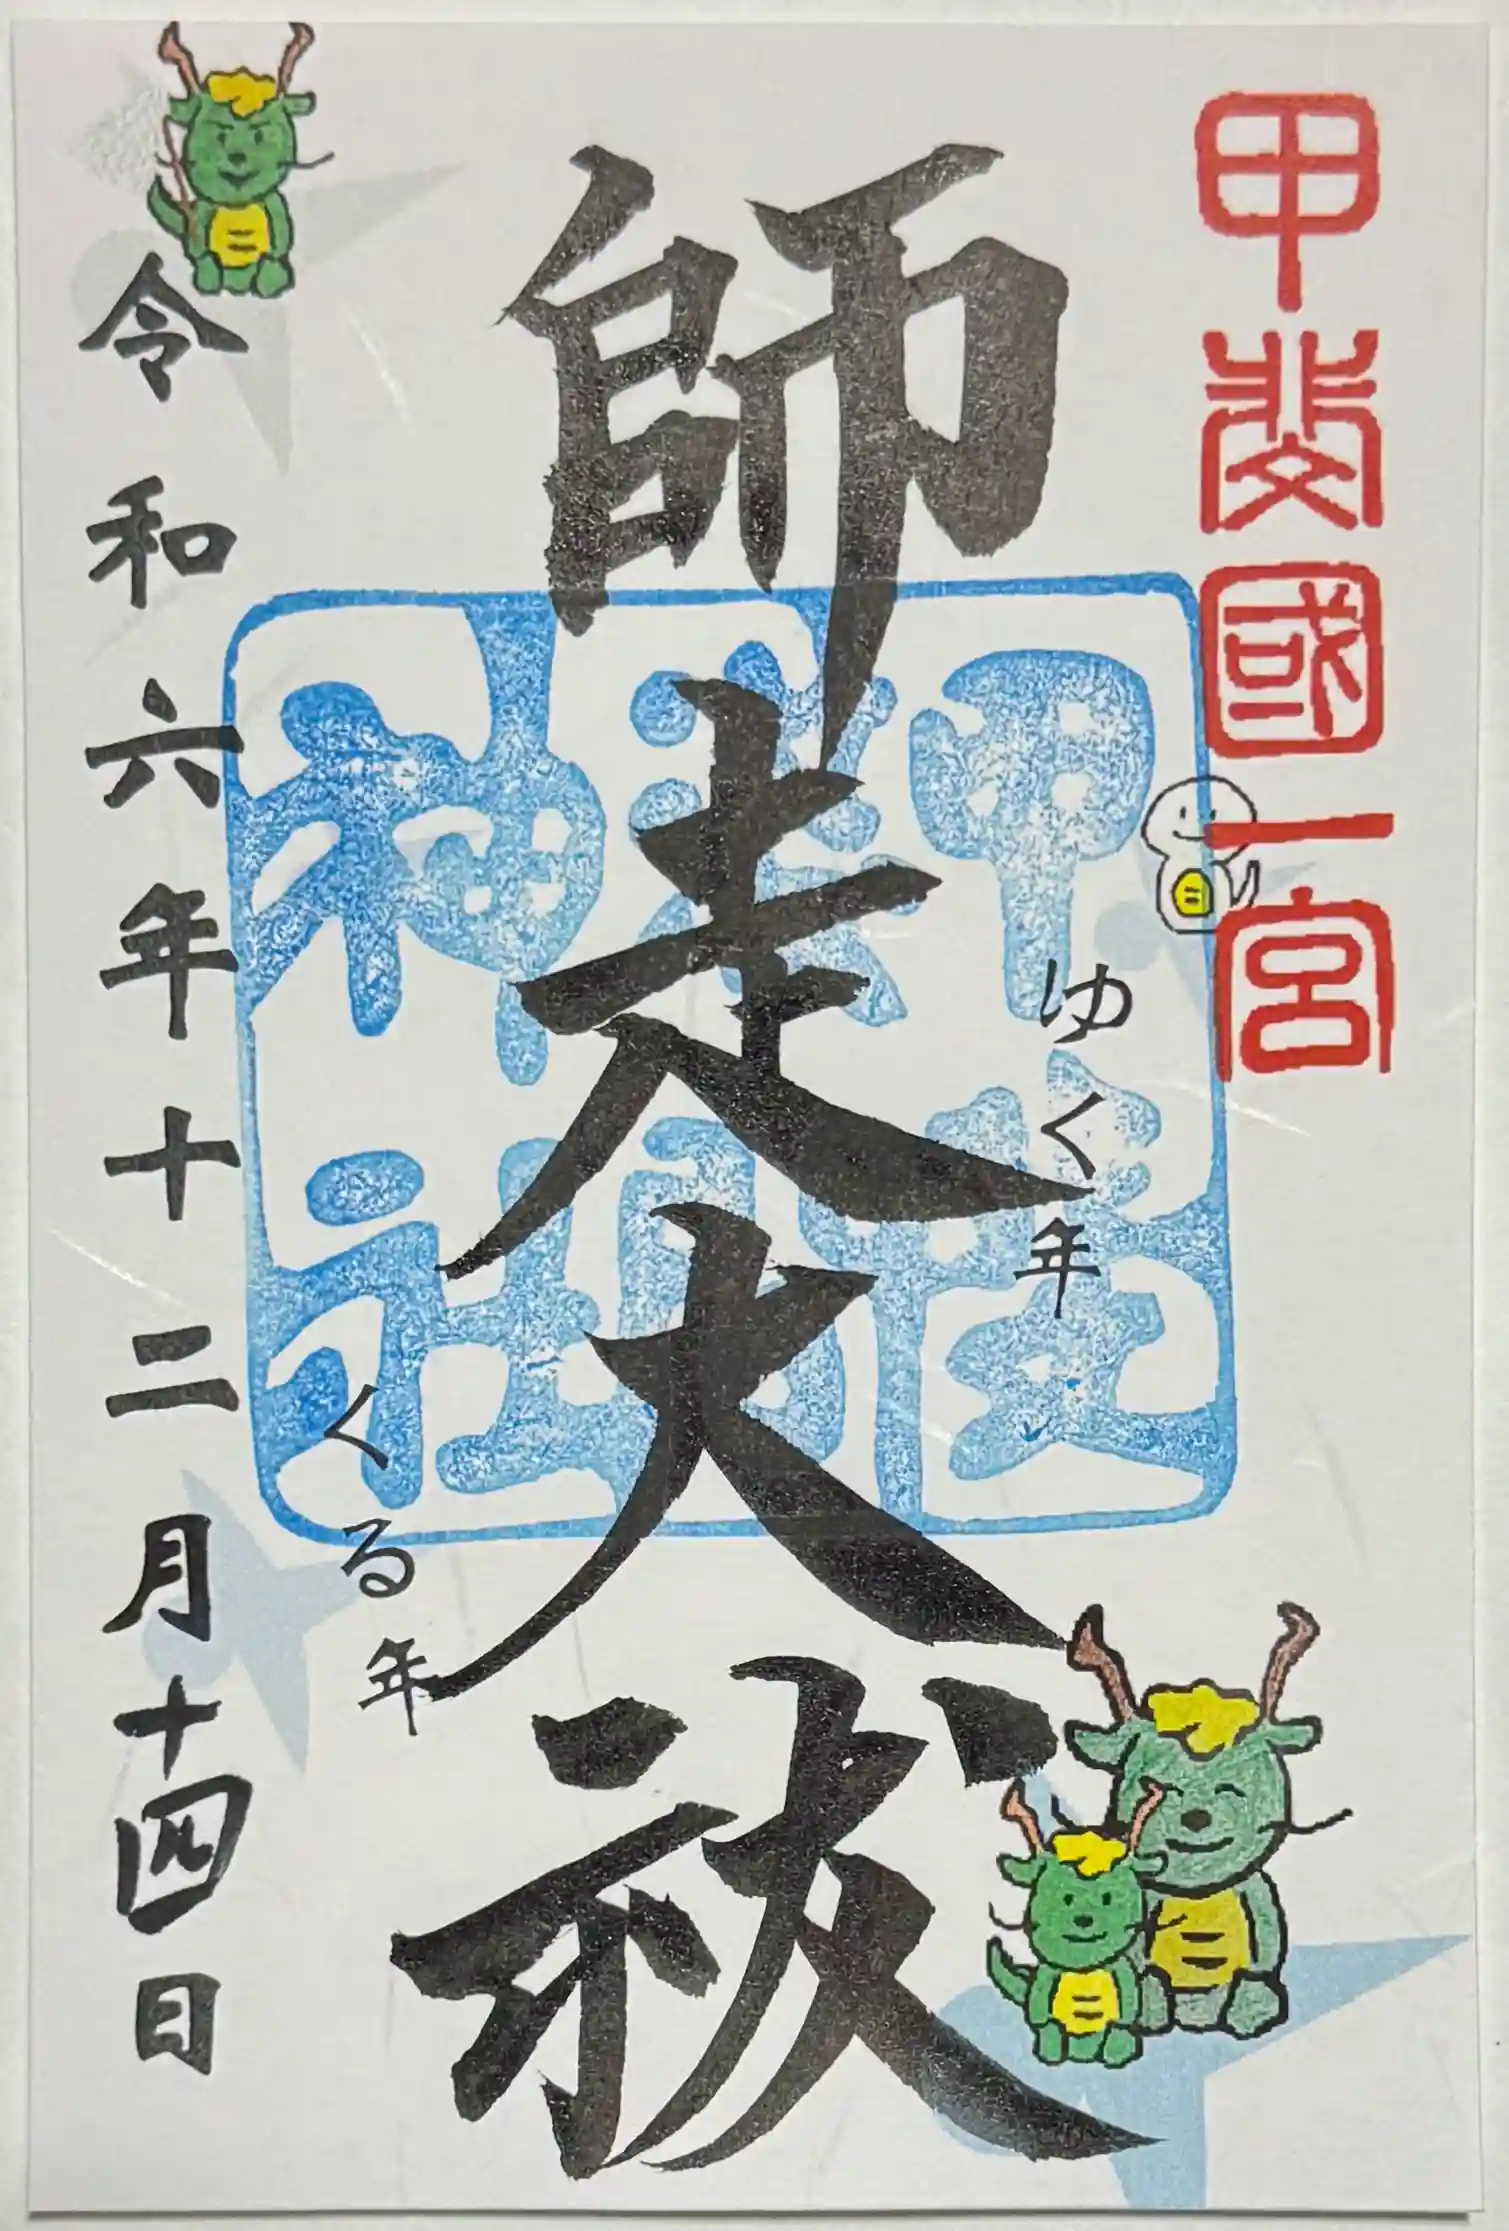 甲斐國一宮
ゆく年
師走大祓
くる年
令和六年十二月十四日
甲斐
國一
神社